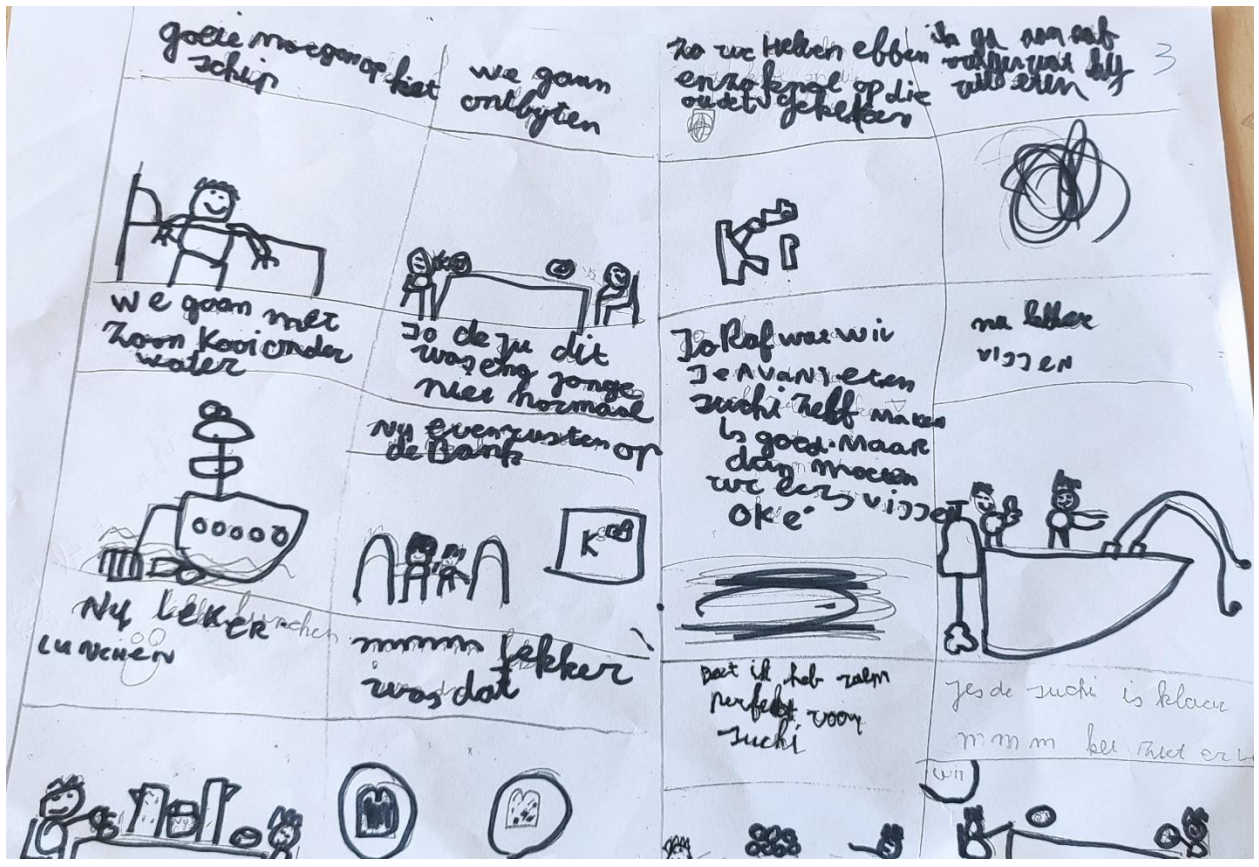 goeie morgen op het
schip
we gaan
ontbyten
zo we Hebben effen
enzo knal op die
gekeken
Ik ga aan
wat hij
wil eten
3
we gaan met
zoon Kooi onder
water
Jo de ju dit
was eng jonge
niet normaal
Ny even rusten op
de Bank
K
Jo Raf wat wil
Je nvan J eten
suchi zelf maken
Is goed. Maar
dan moeten
we eers vissen
oke
nu lekker
vissen
Ny leker
Lunchen
mmmm lekker
was dat
Boet ik heb zalm
perfekt voor
suchi
yes de suchi is klaar
m m m het ziet er